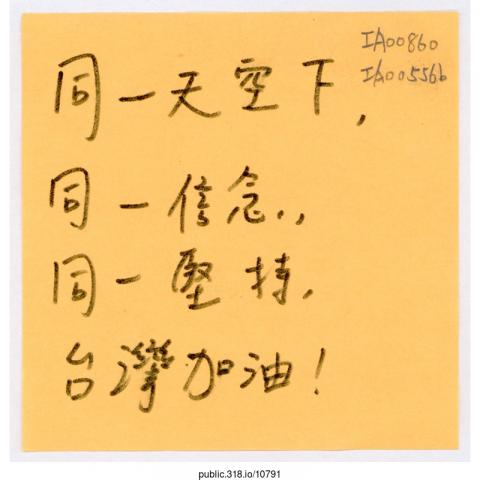 IA00860
IA00556b
同一天空下,
同一信念,,
同一堅持,
台灣加油!
public.318.io/10791